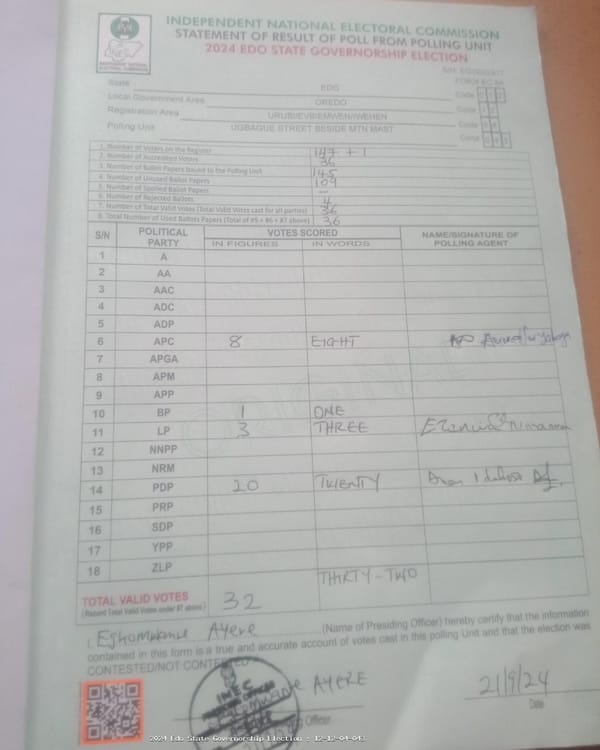 INDEPENDENT NATIONAL ELECTORAL COMMISSION
STATEMENT OF RESULT OF POLL FROM POLLING UNIT
2024 EDO STATE GOVERNORSHIP ELECTION
State EDO Code
Local Government Area OREDO Code
Registration Area Code
Polling Unit UGBAGUE STREET BESIDE MTN MAST Code
1. Number of Voters on the Register 147 + 1
2. Number of Accredited Voters 36
3. Number of Ballot Papers Issued to the Polling Unit 145
4. Number of Unused Ballot Papers 109
5. Number of Spoiled Ballot Papers –
6. Number of Rejected Ballots 4
7. Number of Total Valid Votes (Total Valid Votes cast for all parties)
8. Total Number of Used Ballots Papers (Total of #5 + #6 + #7 above) 36
S/N POLITICAL PARTY VOTES SCORED NAME/SIGNATURE OF POLLING AGENT
IN FIGURES IN WORDS
1 A
2 AA
3 AAC
4 ADC
5 ADP
6 APC 8 EIGHT
7 APGA
8 APM
9 APP
10 BP 1 ONE
11 LP 3 THREE
12 NNPP
13 NRM
14 PDP 20 TWENTY
15 PRP
16 SDP
17 YPP
18 ZLP
TOTAL VALID VOTES 32 THIRTY-TWO
(Record Total Valid Votes under #7 above)
I, AYERE (Name of Presiding Officer) hereby certify that the information
contained in this form is a true and accurate account of votes cast in this polling Unit and that the election was
CONTESTED/NOT CONTESTED
INEC
AYERE 21/9/24
Officer Date
2024 Edo State Governorship Election : 12-12-04-043